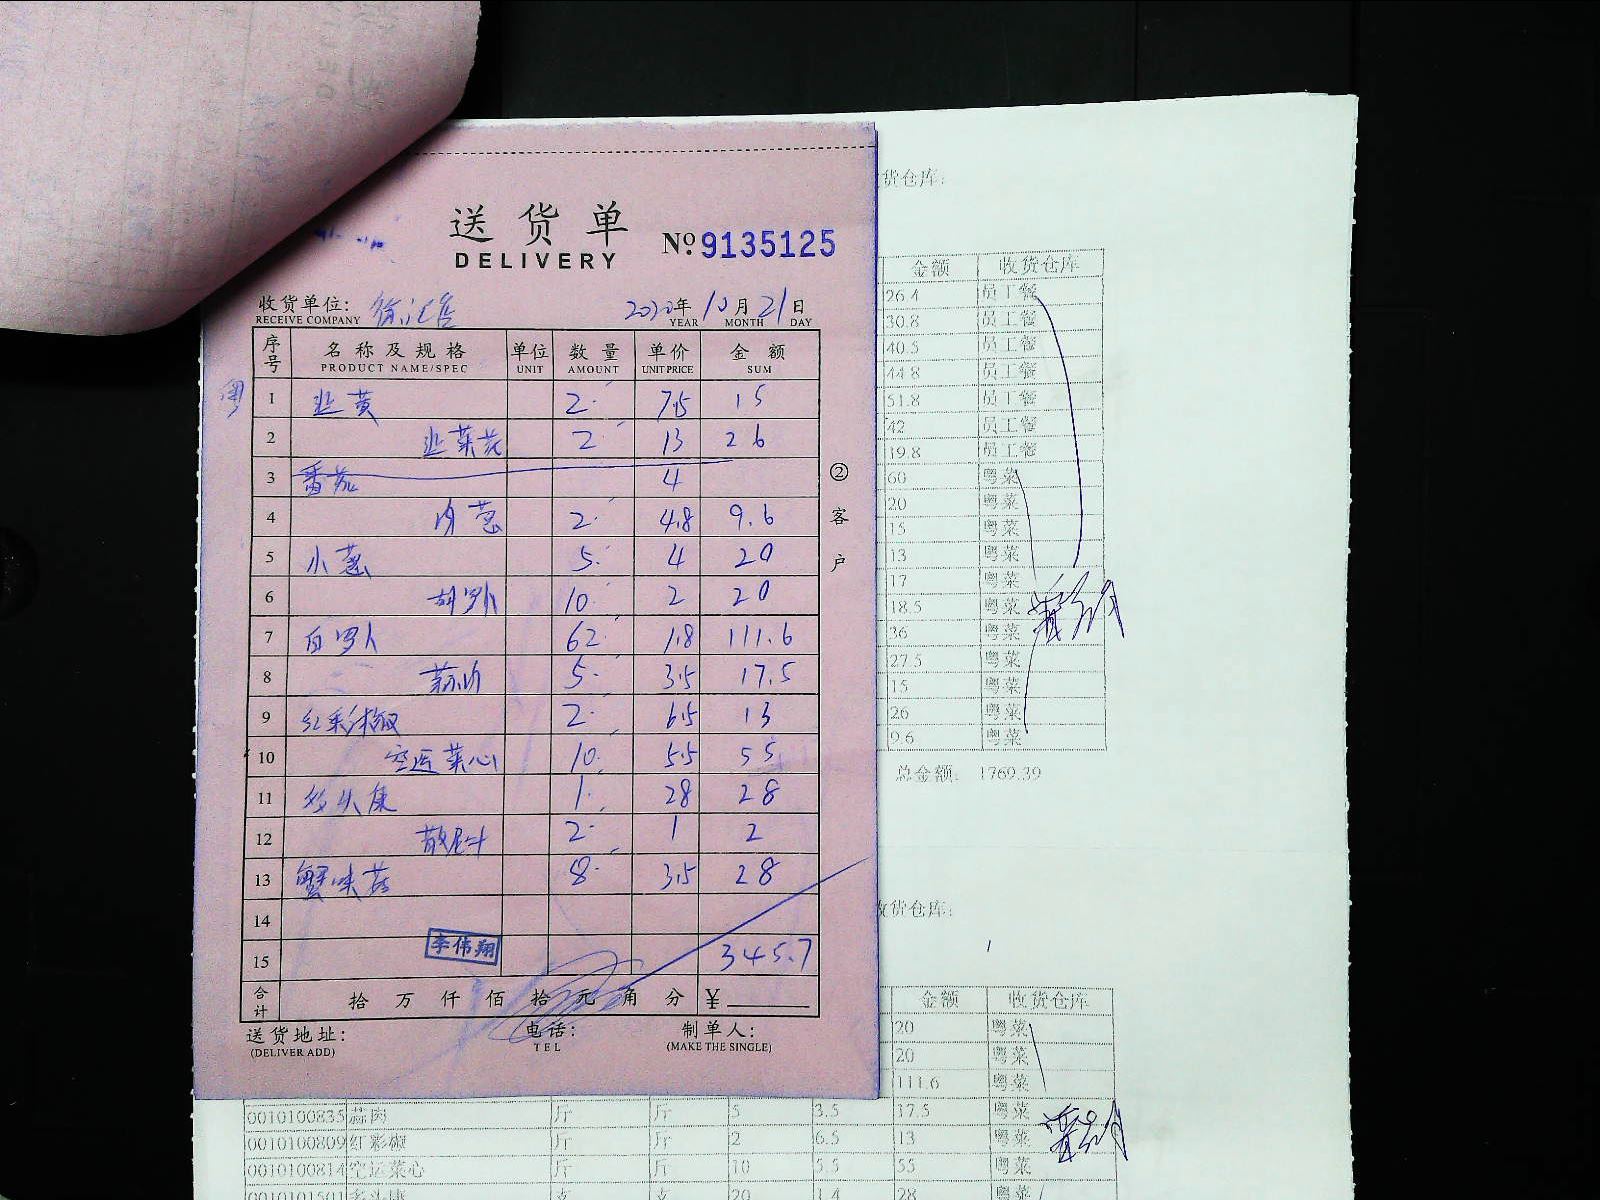 送货单
DELIVERY
№ 9135125
收货单位: 徐汇店 2020年10月21日
RECEIVE COMPANY YEAR MONTH DAY
序号 名称及规格 单位 数量 单价 金额
PRODUCT NAME/SPEC UNIT AMOUNT UNIT PRICE SUM
粤
1 韭黄 2 7.5 15
2 韭菜花 2 13 26
3 番茄 4
4 肉葱 2 4.8 9.6
5 小葱 5 4 20
6 胡罗卜 10 2 20
7 白罗卜 62 1.8 111.6
8 蒜肉 5 3.5 17.5
9 红彩椒 2 6.5 13
10 空运菜心 10 5.5 55
11 多头康 1 28 28
12 2 1 2
13 蟹味菇 8 3.5 28
14
15 李伟翔 345.7
合计 拾万仟佰拾元角分 ¥
送货地址: 电话: 制单人:
(DELIVER ADD) TEL (MAKE THE SINGLE)
②客户
货仓库:
金额 收货仓库
26.4 员工餐
30.8 员工餐
40.5 员工餐
44.8 员工餐
51.8 员工餐
42 员工餐
19.8 员工餐
60 粤菜
20 粤菜
15 粤菜
13 粤菜
17 粤菜
18.5 粤菜
36 粤菜
27.5 粤菜
15 粤菜
26 粤菜
9.6 粤菜
总金额: 1769.39
收货仓库:
金额 收货仓库
20 粤菜
20 粤菜
111.6 粤菜
0010100835 蒜肉 斤 斤 5 3.5 17.5 粤菜
0010100809 红彩椒 斤 斤 2 6.5 13 粤菜
0010100814 空运菜心 斤 斤 10 5.5 55 粤菜
0010101501 多头康 支 支 20 1.4 28 粤菜